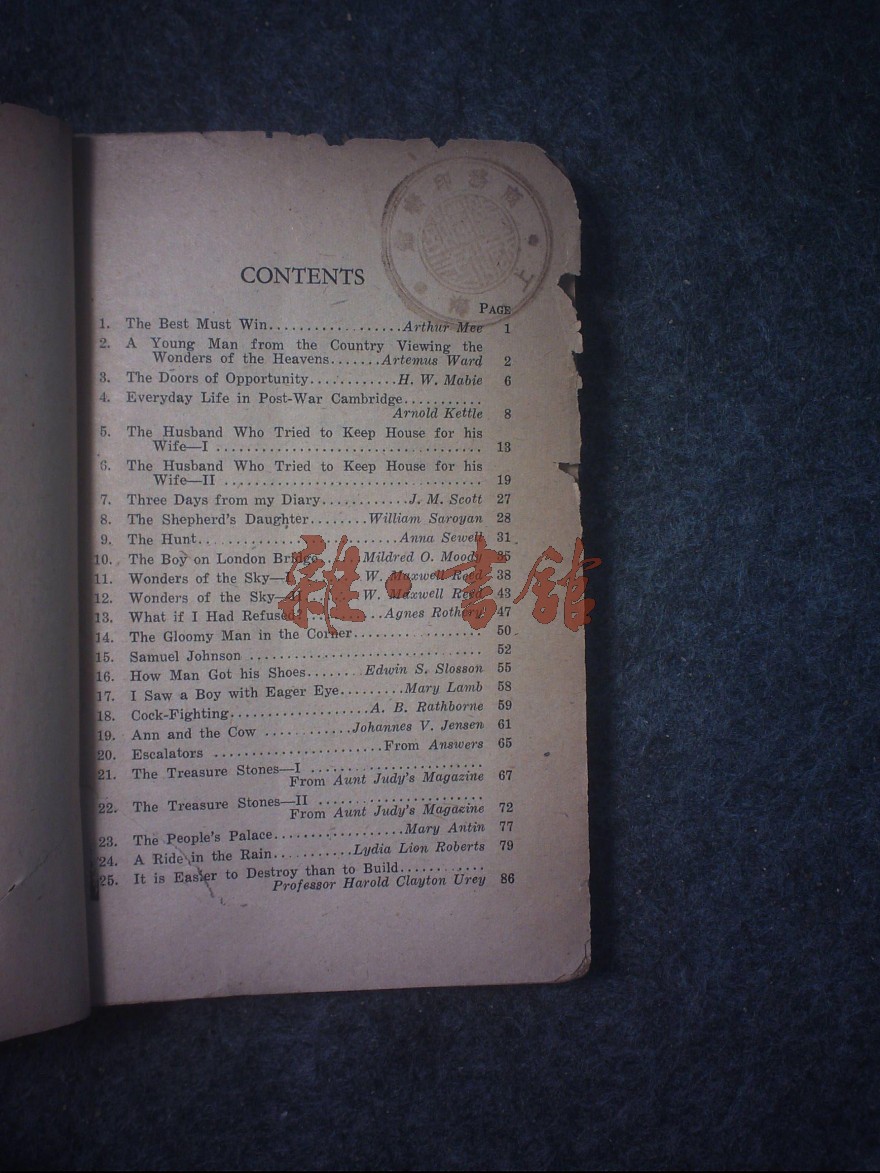 CONTENTS
PAGE
1. The Best Must Win..................Arthur Mee 1
2. A Young Man from the Country Viewing the
Wonders of the Heavens.......Artemus Ward 2
3. The Doors of Opportunity............H. W. Mabie 6
4. Everyday Life in Post-War Cambridge...........
Arnold Kettle 8
5. The Husband Who Tried to Keep House for his
Wife—I ................................... 13
6. The Husband Who Tried to Keep House for his
Wife—II .................................. 19
7. Three Days from my Diary............J. M. Scott 27
8. The Shepherd's Daughter........William Saroyan 28
9. The Hunt..........................Anna Sewell 31
10. The Boy on London Bridge......Mildred O. Moody 35
11. Wonders of the Sky—I..........W. Maxwell Reed 38
12. Wonders of the Sky—II.........W. Maxwell Reed 43
13. What if I Had Refused?...........Agnes Rothery 47
14. The Gloomy Man in the Corner................. 50
15. Samuel Johnson ............................... 52
16. How Man Got his Shoes........Edwin S. Slosson 55
17. I Saw a Boy with Eager Eye.........Mary Lamb 58
18. Cock-Fighting...................A. B. Rathborne 59
19. Ann and the Cow ............Johannes V. Jensen 61
20. Escalators ......................From Answers 65
21. The Treasure Stones—I .......................
From Aunt Judy's Magazine 67
22. The Treasure Stones—II ......................
From Aunt Judy's Magazine 72
23. The People's Palace.................Mary Antin 77
24. A Ride in the Rain...........Lydia Lion Roberts 79
25. It is Easier to Destroy than to Build............
Professor Harold Clayton Urey 86
雜·書館
上海
商務印書館